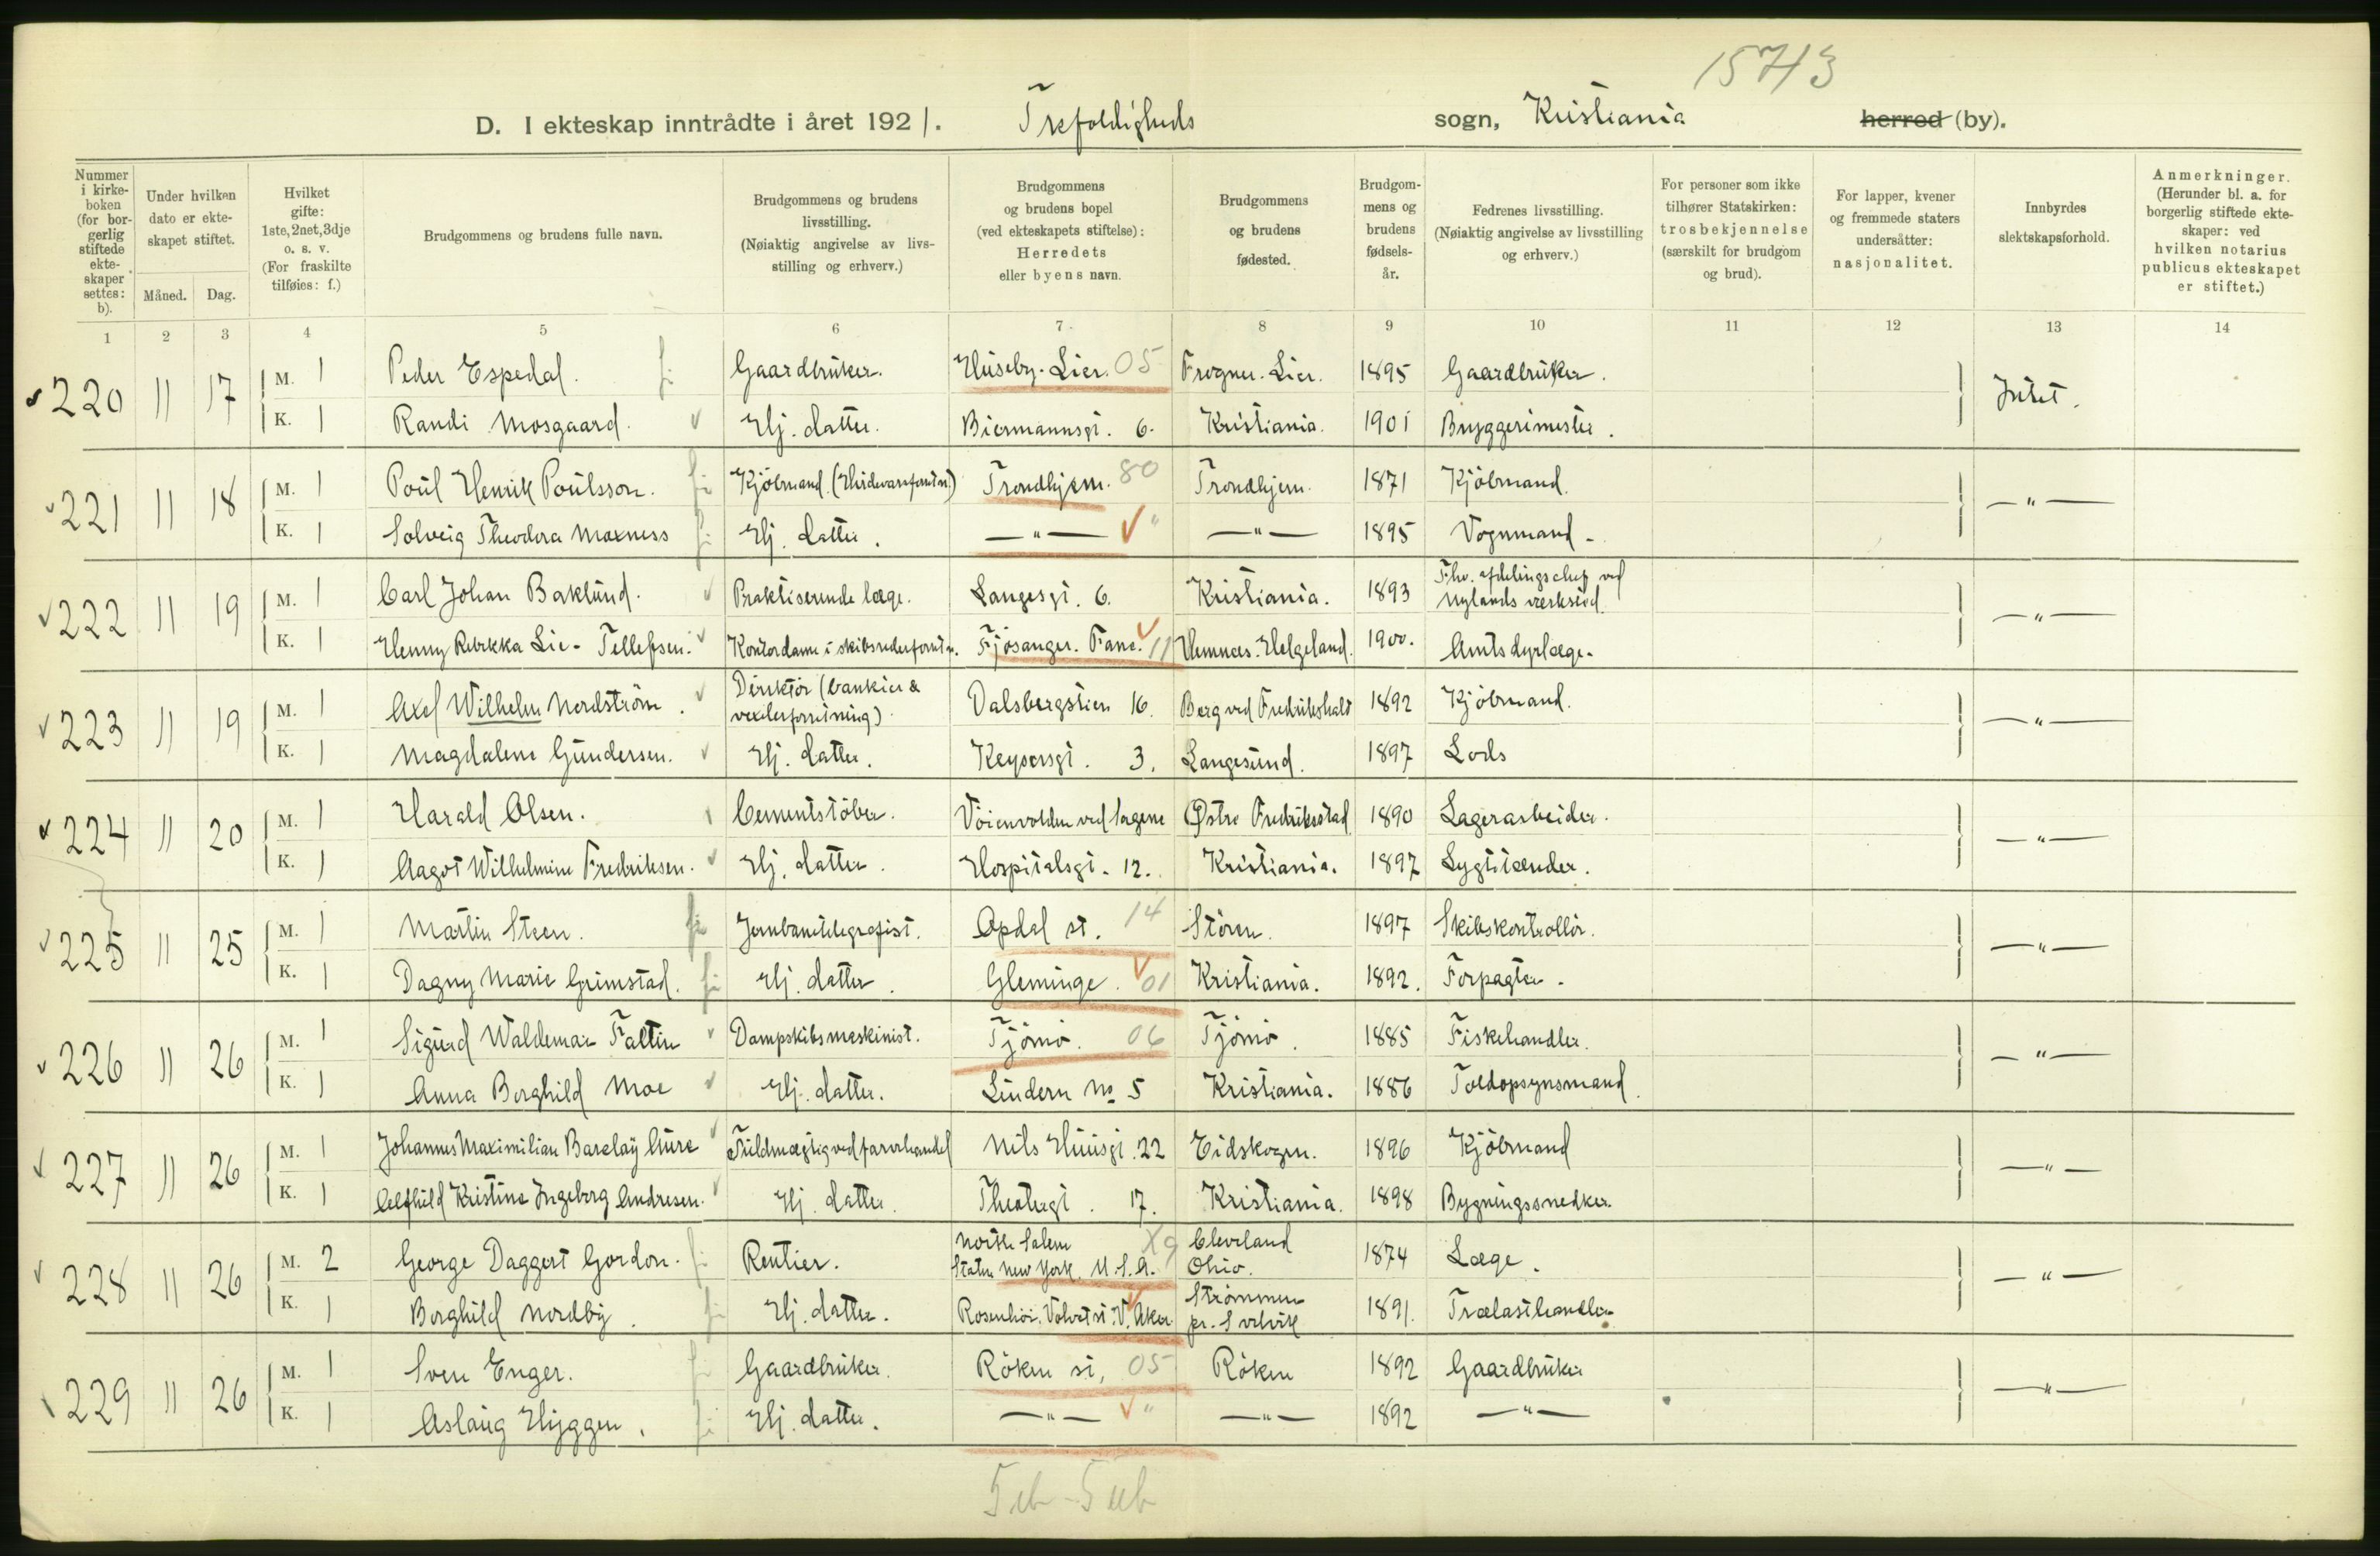 1573
D. I ekteskap inntrådte i året 1921. Trefoldigheds sogn, Kristiania herred (by).
Nummer i kirkeboken (for borgerlig stiftede ekteskaper settes: b).
Under hvilken dato er ekteskapet stiftet.
Måned. Dag.
Hvilket gifte: 1ste, 2net, 3dje o. s. v. (For fraskilte tilføies: f.)
Brudgommens og brudens fulle navn.
Brudgommens og brudens livsstilling. (Nøiaktig angivelse av livsstilling og erhverv.)
Brudgommens og brudens bopel (ved ekteskapets stiftelse): Herredets eller byens navn.
Brudgommens og brudens fødested.
Brudgommens og brudens fødselsår.
Fedrenes livsstilling. (Nøiaktig angivelse av livsstilling og erhverv.)
For personer som ikke tilhører Statskirken: trosbekjennelse (særskilt for brudgom og brud).
For lapper, kvener og fremmede staters undersåtter: nasjonalitet.
Innbyrdes slektskapsforhold.
Anmerkninger. (Herunder bl. a. for borgerlig stiftede ekteskaper: ved hvilken notarius publicus ekteskapet er stiftet.)
1 2 3 4 5 6 7 8 9 10 11 12 13 14
220 11 17 M. 1 Peder Espedal. Gaardbruker. Huseby. Lier. 05 Frogner. Lier. 1895 Gaardbruker. Intet.
K. 1 Randi Mosgaard. Hj. datter. Biermannsgt. 6. Kristiania. 1901 Bryggerimester.
221 11 18 M. 1 Poul Henrik Poulsson. Kjöbmand. Trondhjem. 80 Trondhjem. 1871 Kjöbmand. —"—
K. 1 Solveig Theodora Moxness Hj. datter. —"— " —"— 1895 Vognmand.
222 11 19 M. 1 Carl Johan Baklund. Praktiserende læge. Langesgt. 6. Kristiania. 1893 Fhv. afdelingschef ved Nylands værksted. —"—
K. 1 Henny Rebekka Lie-Tellefsen. Kontordame i skibsrederforretn. Fjösanger. Fane. 11 Hemnes. Helgeland. 1900. Amtsdyrlæge.
223 11 19 M. 1 Axel Wilhelm Nordström. Direktör (bankier & vexlerforretning). Dalsbergstien 16. Berg ved Fredrikshald 1892 Kjöbmand. —"—
K. 1 Magdalene Gundersen. Hj. datter. Keysersgt. 3. Langesund. 1897 Lods
224 11 20 M. 1 Harald Olsen. Cementstöber. Vöienvolden ved Sagene Østre Fredriksstad 1890 Lagerarbeider. —"—
K. 1 Aagot Wilhelmine Fredriksen. Hj. datter. Hospitalsgt. 12. Kristiania. 1897 Lygttænder.
225 11 25 M. 1 Martin Steen. Jernbanetelegrafist. Opdal st. 14 Stören. 1897 Skibskontrollör. —"—
K. 1 Dagny Marie Grimstad. Hj. datter. Gleminge. 01 Kristiania. 1892. Forpagter.
226 11 26 M. 1 Sigurd Waldemar Faltin Dampskibsmaskinist. Tjömö. 06 Tjömö. 1885 Fiskehandler. —"—
K. 1 Anna Borghild Moe Hj. datter. Lindern No 5 Kristiania. 1886 Toldopsynsmand.
227 11 26 M. 1 Johannes Maximilian Barclay Aure Fuldmægtig ved farvehandel Nils Huusgt. 22 Eidskogen. 1896 Kjöbmand —"—
K. 1 Alfhild Kristine Ingeborg Andresen. Hj. datter. Theatergt. 17. Kristiania. 1898 Bygningssnedker.
228 11 26 M. 2 George Daggert Gordon. Rentier. North Salem Staten New York. U.S.A. X9 Cleveland Ohio. 1874 Læge. —"—
K. 1 Borghild Nordby. Hj. datter. Rosenhöi. V. Aker. Strömmen pr. Svelvik 1891. Trælasthandler
229 11 26 M. 1 Sven Enger. Gaardbruker. Röken st, 05 Röken 1892 Gaardbruker —"—
K. 1 Aslaug Hyggen. Hj. datter. —"— " —"— 1892 —"—